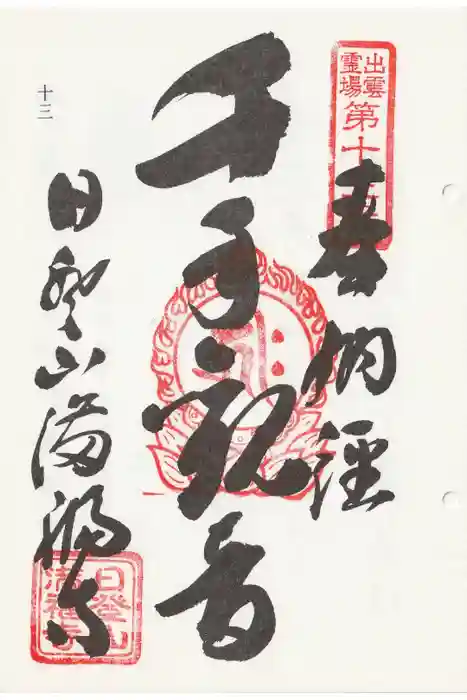 出雲
霊場
第十
奉納経
千手観音
十三
日登山満福寺
日登山
満福寺